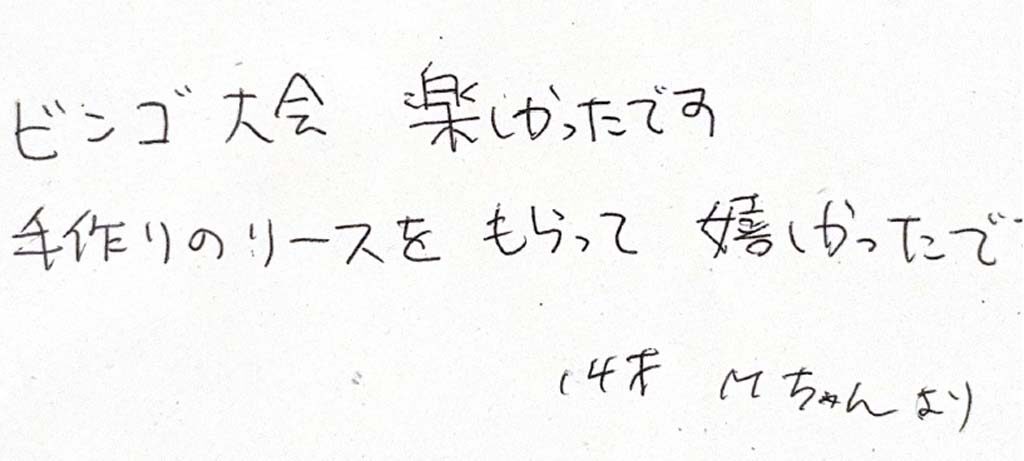 ビンゴ大会 楽しかったです
手作りのリースを もらって 嬉しかったで
14才 Mちゃんより